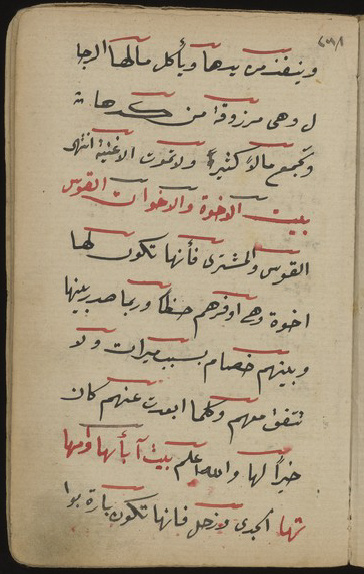 وينفذ من يدها ويأكل مالها الرجا
ل وهى مرزوقة من كدها
وتجمع مالاً كثيراً ولا تموت الا غنية انتهى
بيت الاخوة والاخوات القوس
القوس والمشترى فأنها تكون لها
اخوة وهي اوفرهم حظاً وربما صدر بينها
وبينهم خصام بسبب ميراث ولا
تتفق معهم وكلما ابعدت عنهم كان
خيراً لها والله اعلم بيت آبأها وامها
تها الجدى وزحل فانها تكون بارة بوا